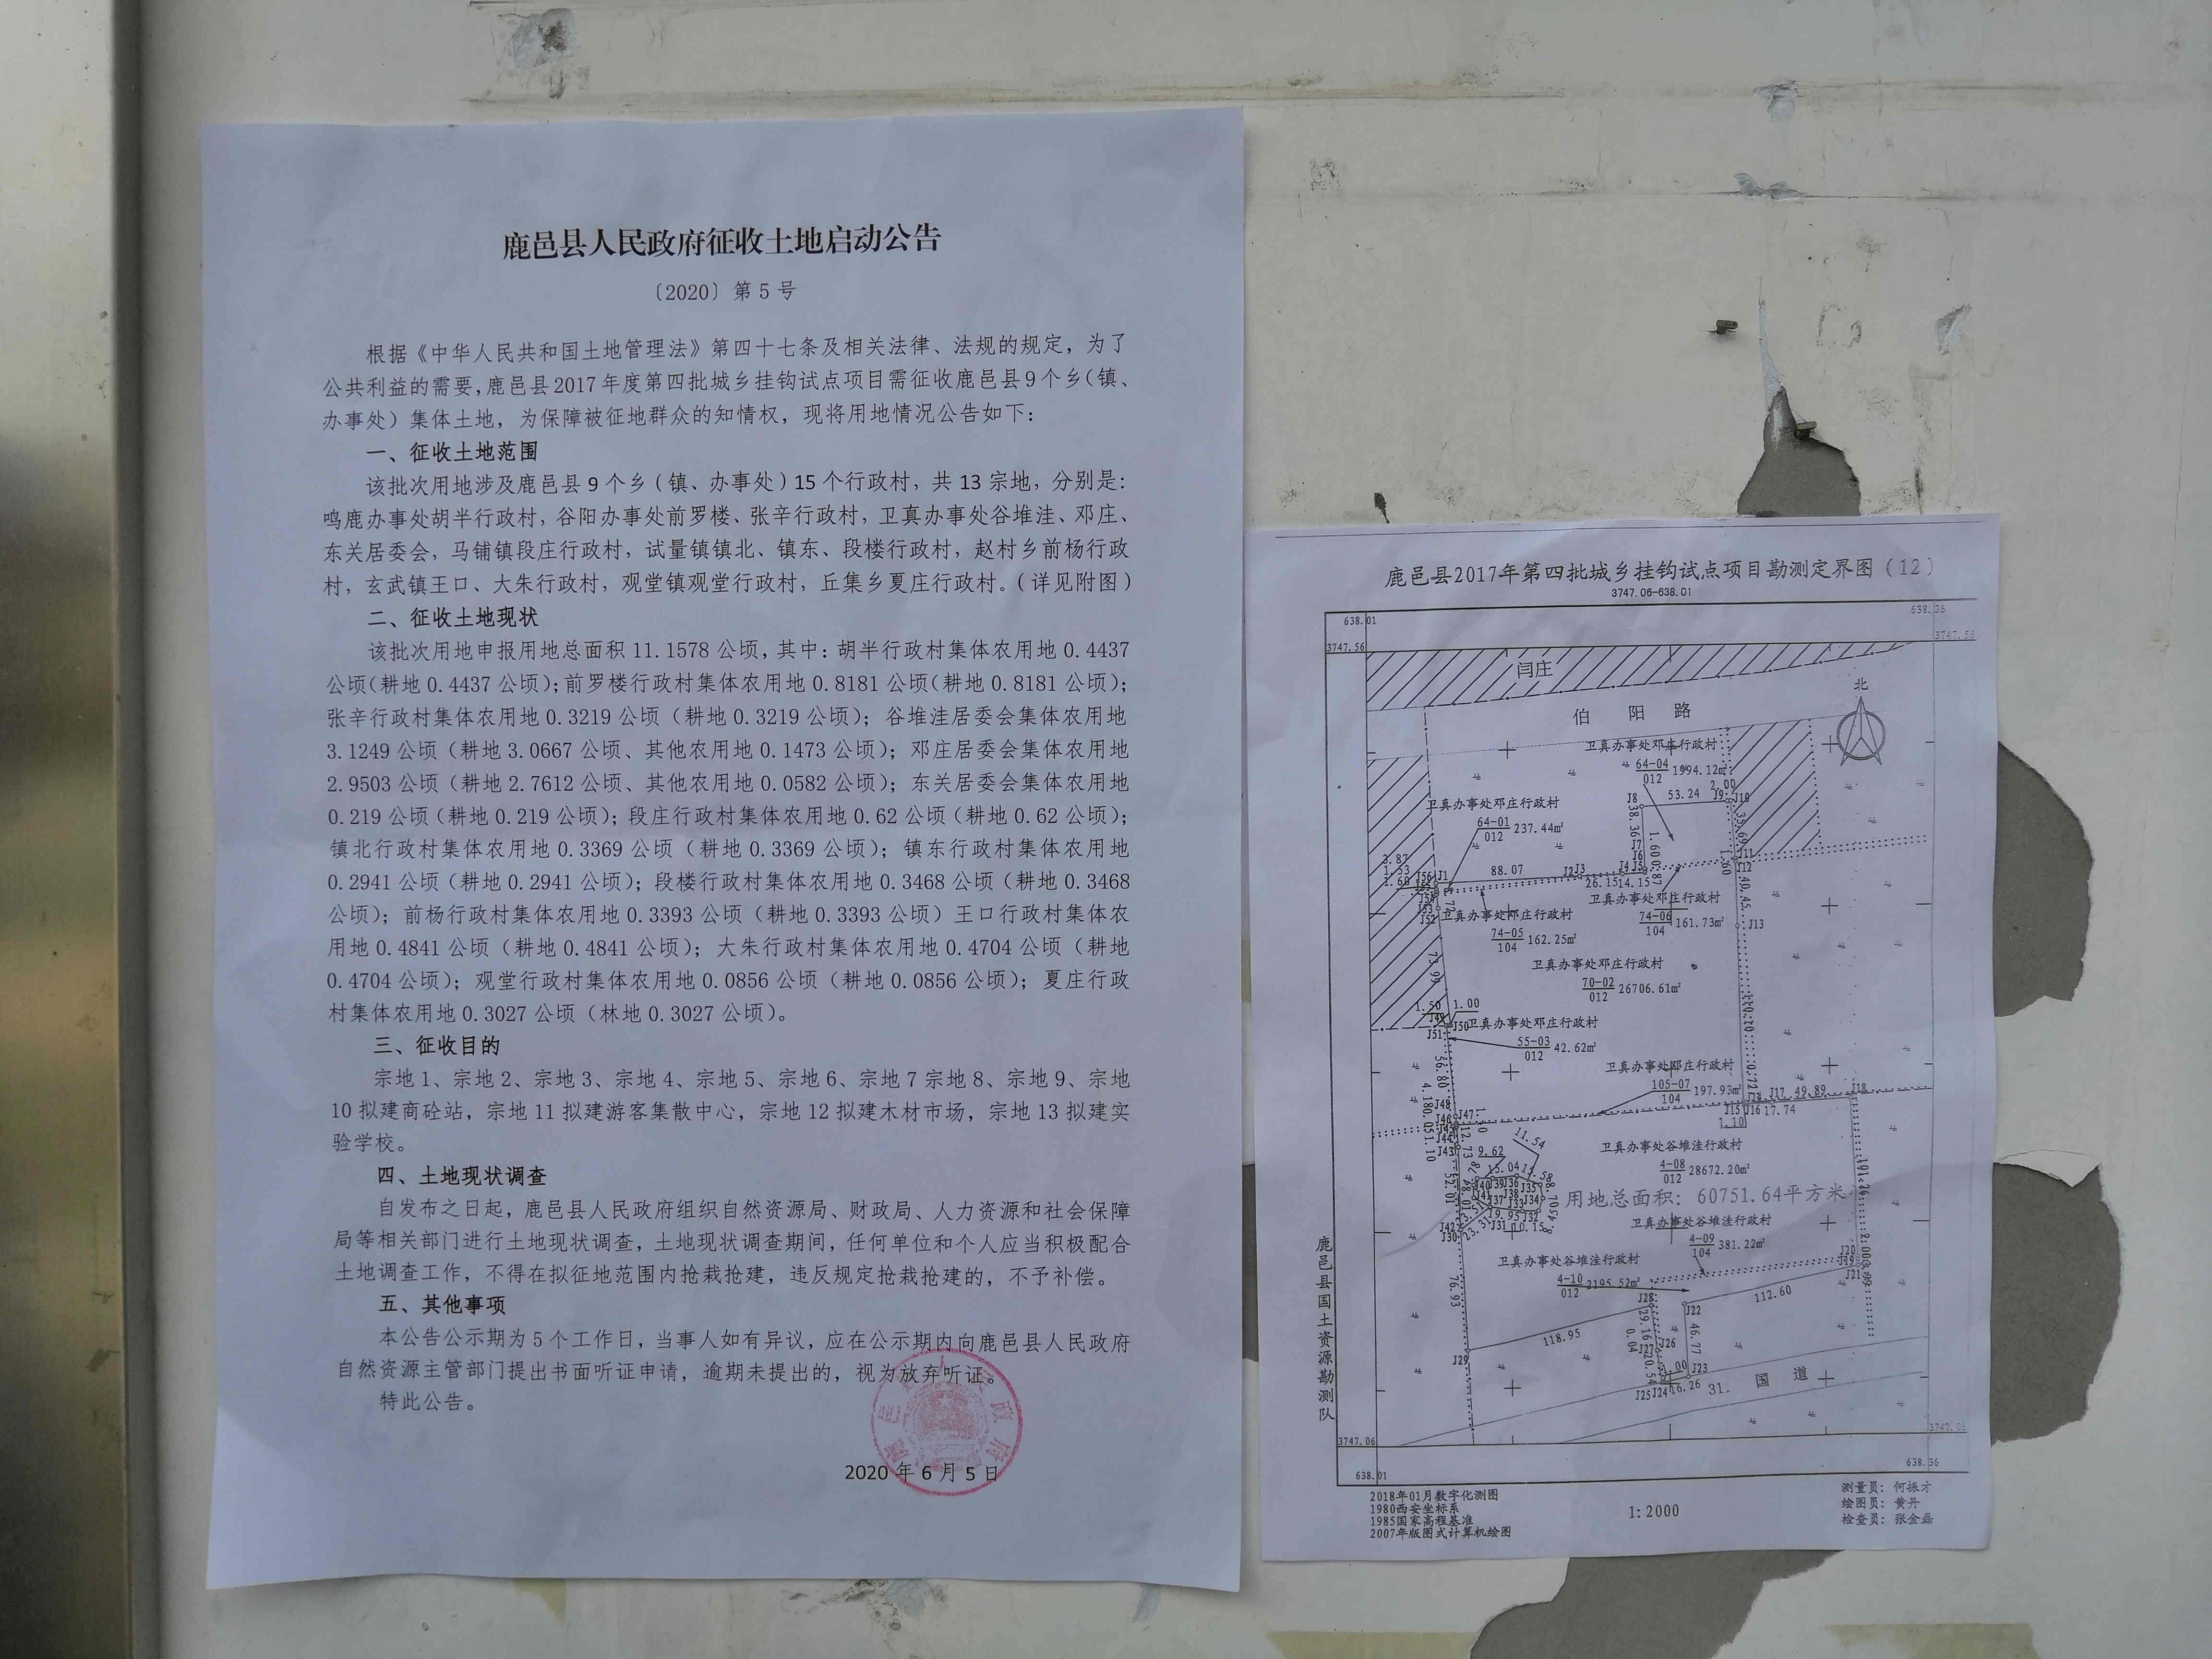 鹿邑县人民政府征收土地启动公告
〔2020〕第5号
根据《中华人民共和国土地管理法》第四十七条及相关法律、法规的规定，为了
公共利益的需要，鹿邑县2017年度第四批城乡挂钩试点项目需征收鹿邑县9个乡（镇、
办事处）集体土地，为保障被征地群众的知情权，现将用地情况公告如下：
一、征收土地范围
该批次用地涉及鹿邑县9个乡（镇、办事处）15个行政村，共13宗地，分别是：
鸣鹿办事处胡半行政村，谷阳办事处前罗楼、张辛行政村，卫真办事处谷堆洼、邓庄、
东关居委会，马铺镇段庄行政村，试量镇镇北、镇东、段楼行政村，赵村乡前杨行政
村，玄武镇王口、大朱行政村，观堂镇观堂行政村，丘集乡夏庄行政村。（详见附图）
二、征收土地现状
该批次用地申报用地总面积11.1578公顷，其中：胡半行政村集体农用地0.4437
公顷（耕地0.4437公顷）；前罗楼行政村集体农用地0.8181公顷（耕地0.8181公顷）；
张辛行政村集体农用地0.3219公顷（耕地0.3219公顷）；谷堆洼居委会集体农用地
3.1249公顷（耕地3.0667公顷、其他农用地0.1473公顷）；邓庄居委会集体农用地
2.9503公顷（耕地2.7612公顷、其他农用地0.0582公顷）；东关居委会集体农用地
0.219公顷（耕地0.219公顷）；段庄行政村集体农用地0.62公顷（耕地0.62公顷）；
镇北行政村集体农用地0.3369公顷（耕地0.3369公顷）；镇东行政村集体农用地
0.2941公顷（耕地0.2941公顷）；段楼行政村集体农用地0.3468公顷（耕地0.3468
公顷）；前杨行政村集体农用地0.3393公顷（耕地0.3393公顷）王口行政村集体农
用地0.4841公顷（耕地0.4841公顷）；大朱行政村集体农用地0.4704公顷（耕地
0.4704公顷）；观堂行政村集体农用地0.0856公顷（耕地0.0856公顷）；夏庄行政
村集体农用地0.3027公顷（林地0.3027公顷）。
三、征收目的
宗地1、宗地2、宗地3、宗地4、宗地5、宗地6、宗地7宗地8、宗地9、宗地
10拟建商砼站，宗地11拟建游客集散中心，宗地12拟建木材市场，宗地13拟建实
验学校。
四、土地现状调查
自发布之日起，鹿邑县人民政府组织自然资源局、财政局、人力资源和社会保障
局等相关部门进行土地现状调查，土地现状调查期间，任何单位和个人应当积极配合
土地调查工作，不得在拟征地范围内抢栽抢建，违反规定抢栽抢建的，不予补偿。
五、其他事项
本公告公示期为5个工作日，当事人如有异议，应在公示期内向鹿邑县人民政府
自然资源主管部门提出书面听证申请，逾期未提出的，视为放弃听证。
特此公告。
2020年6月5日
鹿邑县2017年第四批城乡挂钩试点项目勘测定界图（12）
3747.06-638.01
638.01
638.36
3747.56
3747.56
闫庄
北
伯阳路
卫真办事处邓庄行政村
64-04
012
1994.12㎡
2.00
53.24
J8
J9
J10
38.36
卫真办事处邓庄行政村
64-01
012
237.44㎡
J7
J6
J11
J12
3.87
1.53
1.60
88.07
J1
J2
J3
J4
J5
26.15
14.15
卫真办事处邓庄行政村
74-06
104
161.73㎡
40.45
J13
卫真办事处邓庄行政村
74-05
104
162.25㎡
卫真办事处邓庄行政村
70-02
012
26706.61㎡
73.99
1.50
1.00
J50
J51
卫真办事处邓庄行政村
55-03
012
42.62㎡
56.80
卫真办事处邓庄行政村
105-07
104
197.93㎡
J17
49.89
J18
J15
J16
17.74
1.10
J48
J47
卫真办事处谷堆洼行政村
4-08
012
28672.20㎡
11.54
9.62
15.04
用地总面积：60751.64平方米
卫真办事处谷堆洼行政村
4-09
104
381.22㎡
J42
J30
J31
J32
卫真办事处谷堆洼行政村
4-10
012
2195.52㎡
J20
J19
J21
76.93
J28
J22
112.60
118.95
29.16
46.77
J29
J27
J26
0.04
20.54
J23
J25
J24
16.26
国道
3747.06
3747.06
638.01
638.36
鹿邑县国土资源勘测队
2018年01月数字化测图
1980西安坐标系
1985国家高程基准
2007年版图式计算机绘图
1:2000
测量员：何振才
绘图员：黄丹
检查员：张金磊